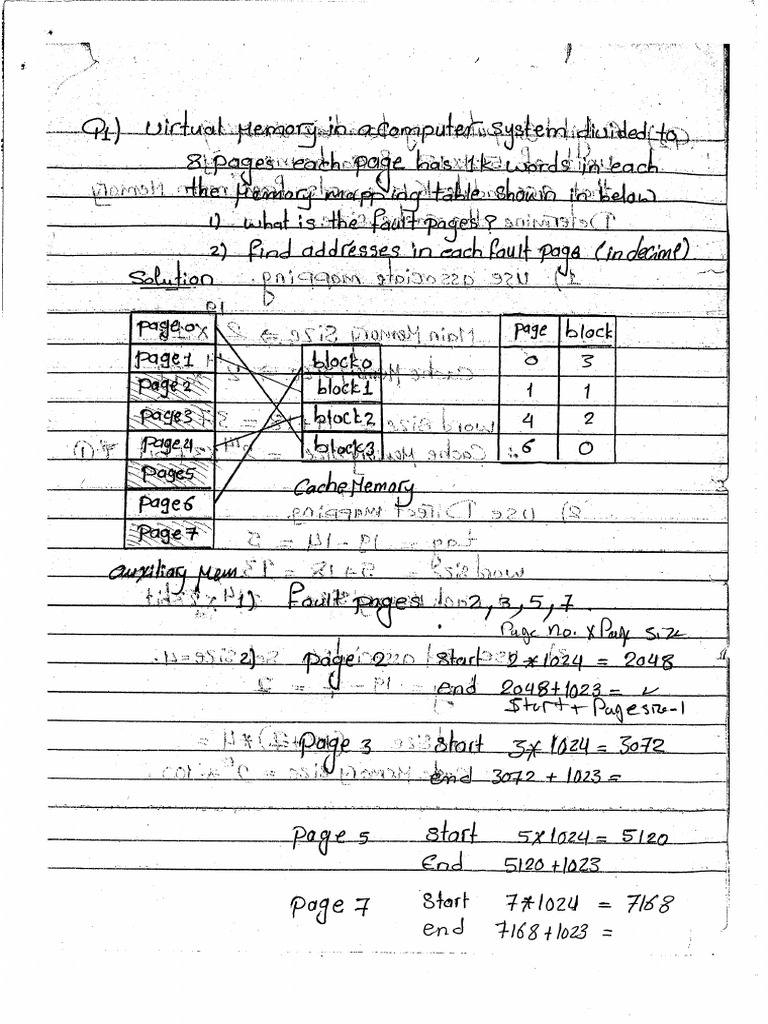 Q1) Virtual Memory in a computer system divided to
8 pages each page has 1k words in each
the Memory mapping table shown in below
1) what is the fault pages?
2) find addresses in each fault page (in decimel)
Solution
page 0
page 1
page 2
page 3
page 4
page 5
page 6
page 7
Auxiliary Mem
block 0
block 1
block 2
block 3
Cache Memory
page block
0 3
1 1
4 2
6 0
1) Fault pages 2, 3, 5, 7
Page no. x Page size
2) page 2 start 2 * 1024 = 2048
end 2048+1023 = ✓
Start + Page size-1
page 3 start 3 * 1024 = 3072
end 3072 + 1023 =
page 5 start 5 x 1024 = 5120
End 5120 +1023
page 7 start 7*1024 = 7168
end 7168+1023 =